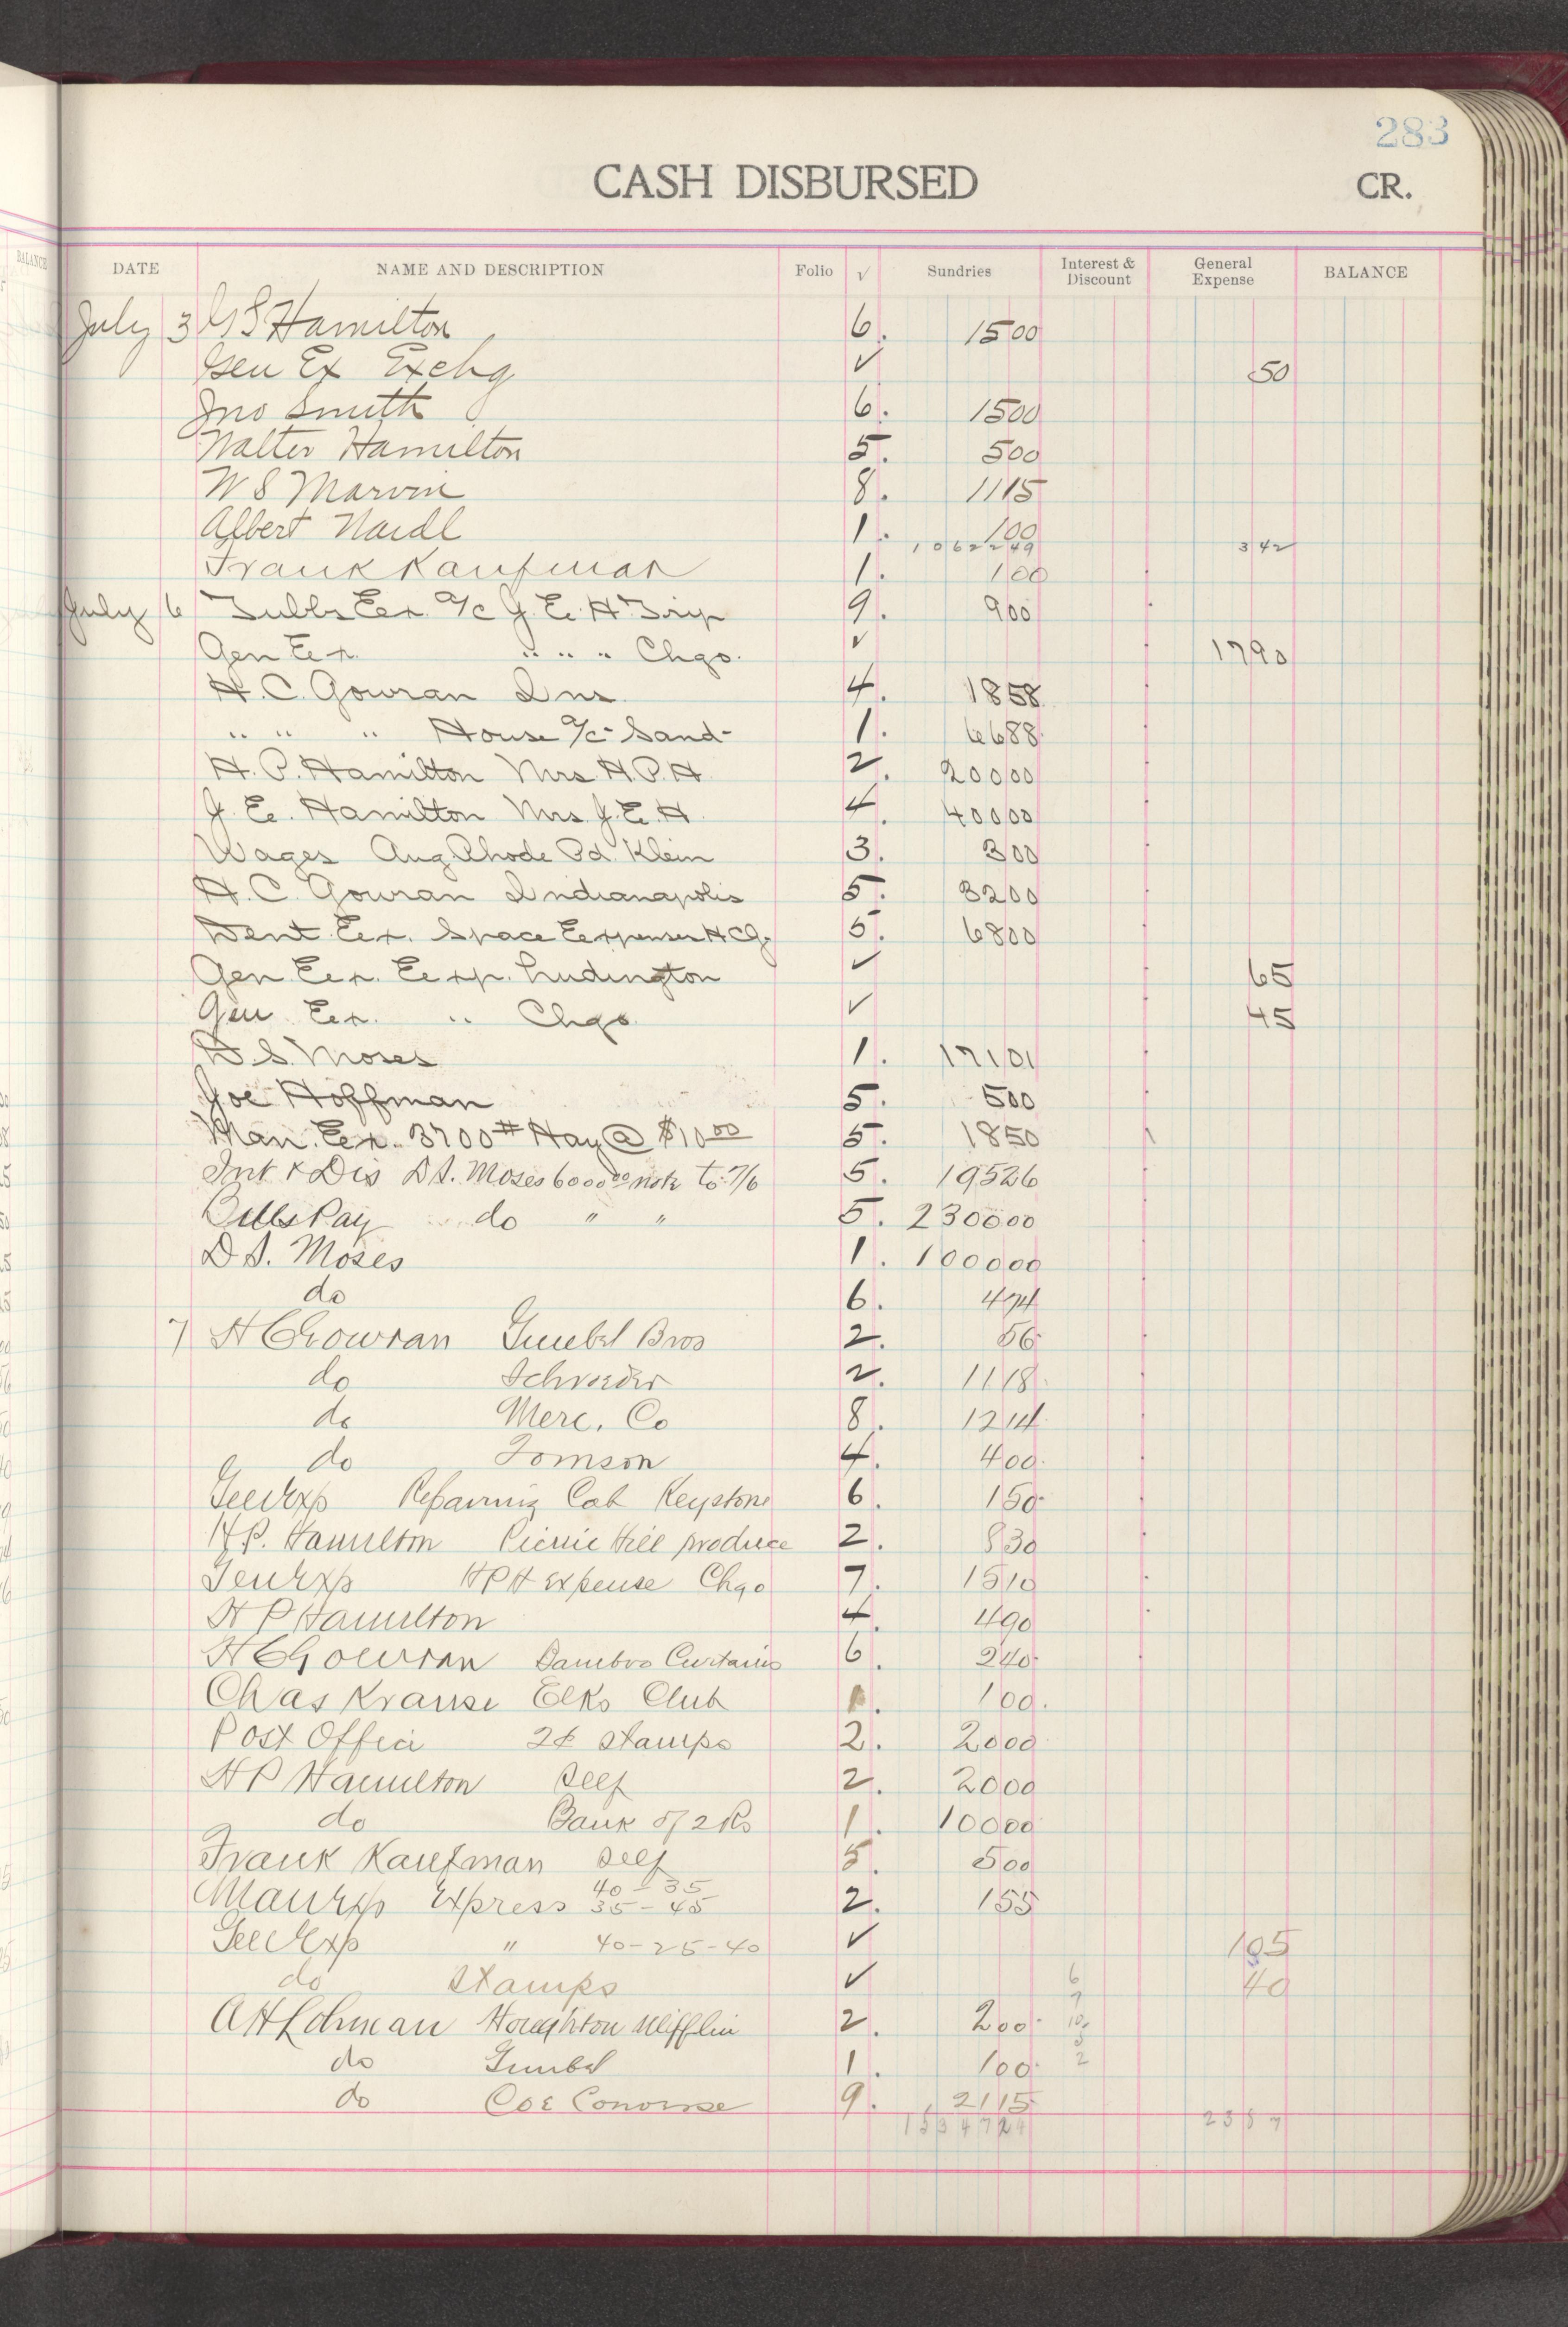 283
CASH DISBURSED CR.
DATE NAME AND DESCRIPTION Folio √ Sundries Interest & Discount General Expense BALANCE
July 3 G S Hamilton 6. 1500
Gen Ex Exchg √ 50
Jno Smith 6. 1500
Walter Hamilton 5. 500
W S Marvin 8. 1115
Albert Nardl 1. 100
1062249 342
Frank Kaufman 1. 100
July 6 Tubbs Ex. a/c J. E. H. Trip 9. 900
Gen Ex. " " " Chgo. √ 1790
H. C. Gowran Ins 4. 1858
" " " House a/c - Sand - 1. 6688
H. P. Hamilton Mrs. H. P. H. 2. 20000
J. E. Hamilton Mrs. J. E. H. 4. 40000
Wages Aug. Rhode Pd. Klein 3. 300
H. C. Gowran Indianapolis 5. 3200
Dent. Ex. Space Expenses H C G. 5. 6800
Gen. Ex. Exp. Ludington √ 65
Gen Ex. " Chgo √ 45
D. S. Moses 1. 17101
Joe Hoffman 5. 500
Man. Ex. 3700# Hay @ $10 00 5. 1850
Int & Dis D S. Moses 6000 00 note to 7/6 5. 19526
Bills Pay do " " 5. 230000
D S. Moses 1. 100000
do 6. 494
7 H C Gowran Gimbel Bros 2. 56
do Schroeder 2. 1118
do Merc. Co 8. 1214
do Tomson 4. 400
Gen Exp Repairing Cab Keystone 6. 150
H P. Hamilton Picnic Hill produce 2. 830
Gen Exp H P H expense Chgo 7. 1510
H P Hamilton 4. 490
H C Gowran Bamboo Curtains 6. 240
Chas Krause Elks Club 1. 100
Post Office 2¢ stamps 2. 2000
H P Hamilton self 2. 2000
do Bank of 2 Rs 1. 10000
Frank Kaufman self 5. 500
Man Exp Express 40 - 35 35 - 45 2. 155
Gen Exp " 40 - 25 - 40 √ 105
do Stamps √ 6 40
A H Lohman Houghton Mifflin 2. 200
do Gimbel 1. 100 2
do Coe Converse 9. 2115
1534724 2357